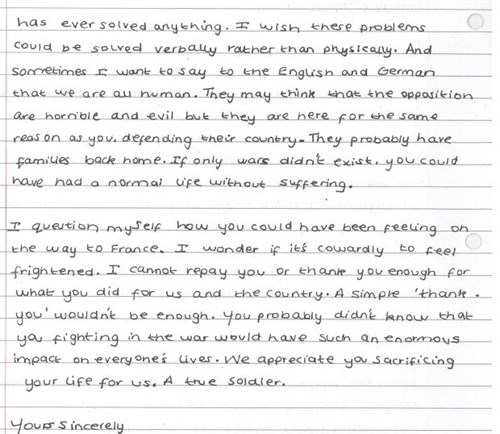 has ever solved anything. I wish these problems
could be solved verbally rather than physically. And
sometimes I want to say to the English and German
that we are all human. They may think that the opposition
are horrible and evil but they are here for the same
reason as you, defending their country. They probably have
families back home. If only wars didn't exist, you could
have had a normal life without suffering.

I question myself how you could have been feeling on
the way to France. I wonder if it's cowardly to feel
frightened. I cannot repay you or thank you enough for
what you did for us and the country. A simple 'thank.
you' wouldn't be enough. You probably didn't know that
you fighting in the war would have such an enormous
impact on everyone's lives. We appreciate you sacrificing
your life for us. A true soldier.

Yours Sincerely